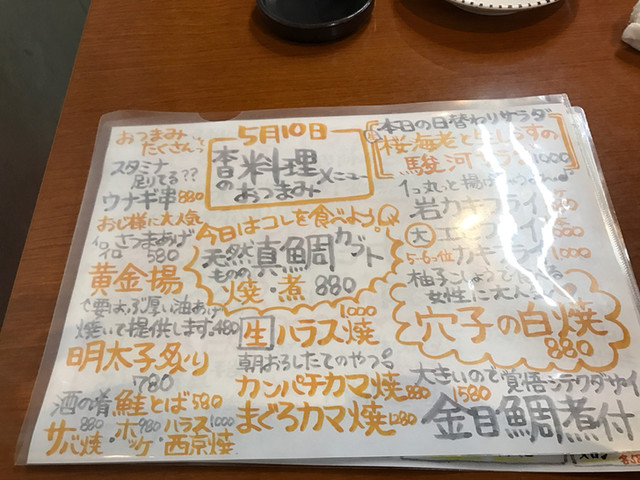 おつまみ
たくさんっ
スタミナ
足りてる??
ウナギ串 880
おじ様に大人気
さつまあげ
580
黄金揚
で要はぶ厚い油あげ
焼いて提供します。480
明太子炙り
780
酒の肴 鮭とば 580
880 980 1000
サバ焼・ホッケ・ハラス西京焼
5月10日
本日の料理メニュー
おつまみ
今日はコレを食べよう。
天然ものの真鯛カブト
焼・煮 880
1000
生ハラス焼
朝おろしたてのやつ
カンパチカマ焼 880
まぐろカマ焼 1280
本日の日替わりサラダ
桜海老と
駿河サラダ 1000
岩カキフライ
大エビフライ
5-6コ位カキフライ 1000
柚子こしょうで
女性に大人
穴子の白焼
880
大きいので覚悟シテクダサイ
1580
金目鯛煮付